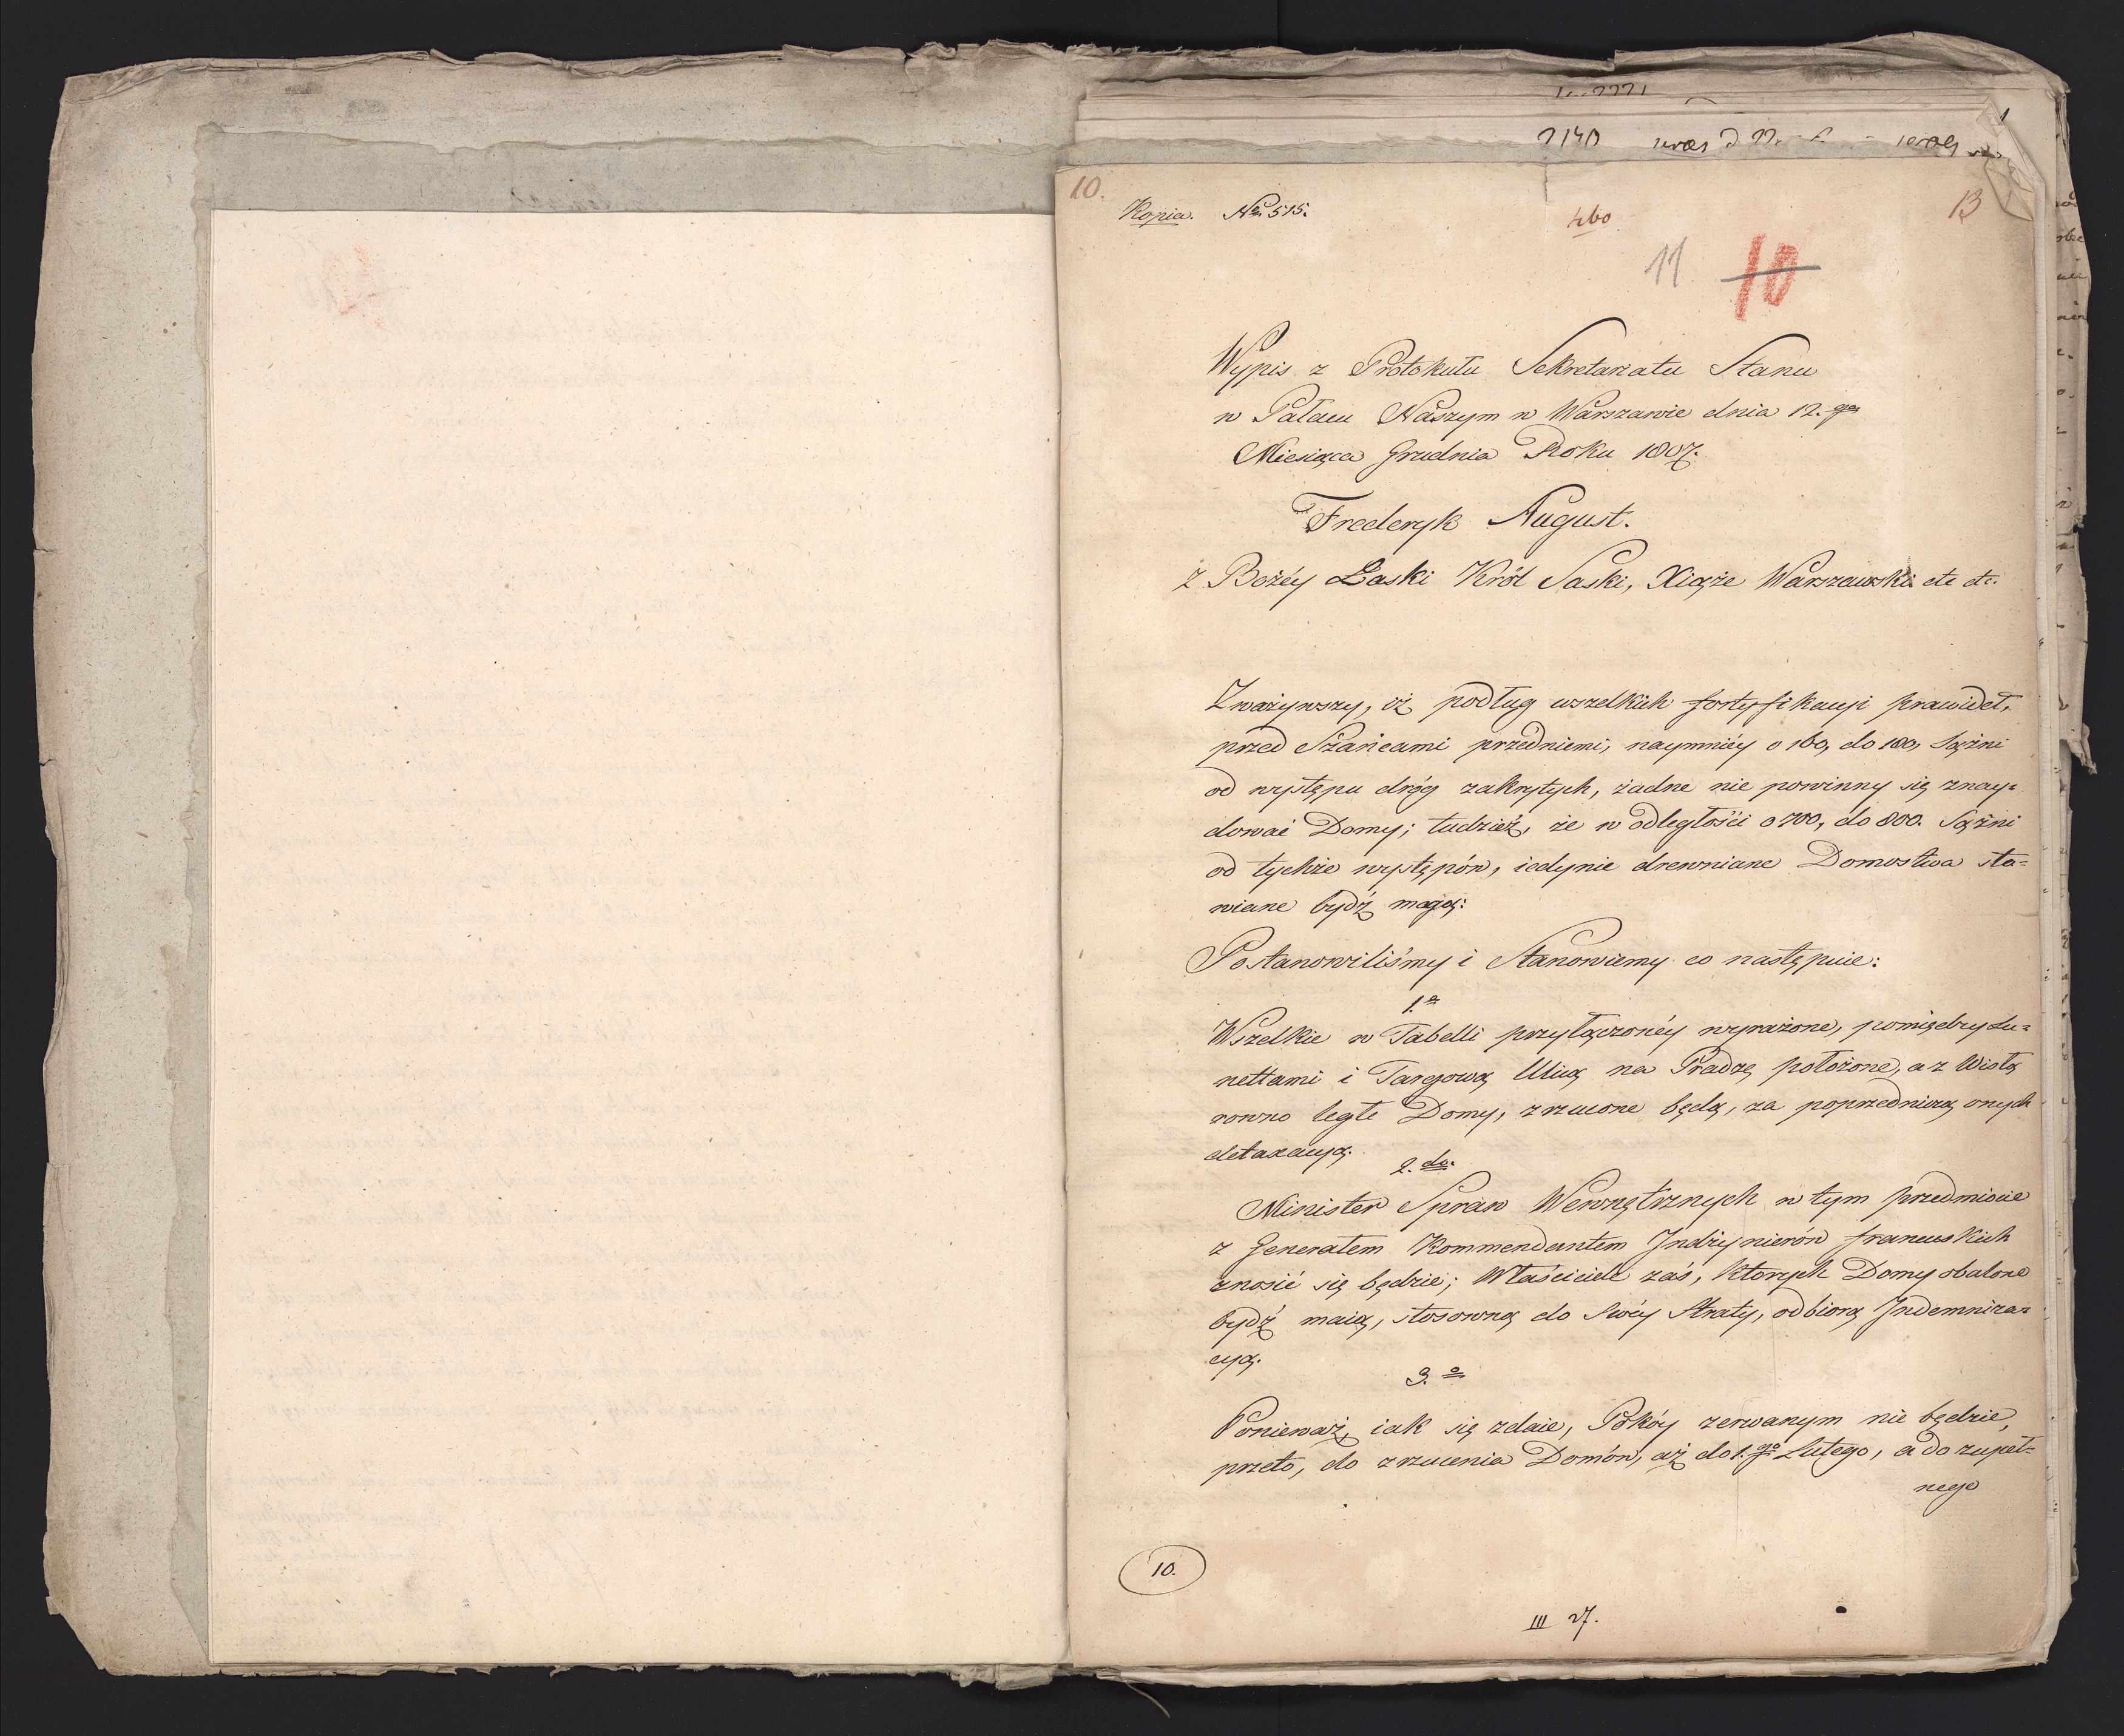 10.
Kopia. Nr 515.
460
13
11 10
Wypis z Protokułu Sekretariatu Stanu
w Pałacu Naszym w Warszawie dnia 12.go
Miesiąca Grudnia Roku 1807.
Frederyk August.
z Bożéy Łaski Król Saski, Xiąże Warszawski etc etc.
Zważywszy, iż podług wszelkich fortyfikacyi prawideł,
przed Szańcami przedniemi, naymniéy o 160, do 180, Sążni
od występu dróg zakrytych, żadne nie powinny się znay=
dować Domy; tudzież, że w odległości o 700, do 800. Sążni
od tychże występów, iedynie drewniane Domostwa sta=
wiane bydź mają:
Postanowiliśmy i Stanowiemy co następuie:
1.o
Wszelkie w Tabelli przyłączonéy wyrażone, pomiędzy Lu=
nettami i Targową Ulicą na Pradze położone, a z Wisłą
rowno ległe Domy, zrzucone będą, za poprzedniczą onych
detaxacyą.
2.do
Minister Spraw Wewnętrznych w tym przedmiocie
z Generałem Kommendantem Indżynierów francuskich
znosić się będzie; Właściciele zaś, których Domy obalone
bydź maią, stosowną do swéy Straty, odbiorą Indemniza=
cyą.
3.o
Ponieważ, iak się zdaie, Pokóy zerwanym nie będzie,
przeto, do zrzucenia Domów, aż do 1.go Lutego, a do zupeł=
nego
10.
III 27.